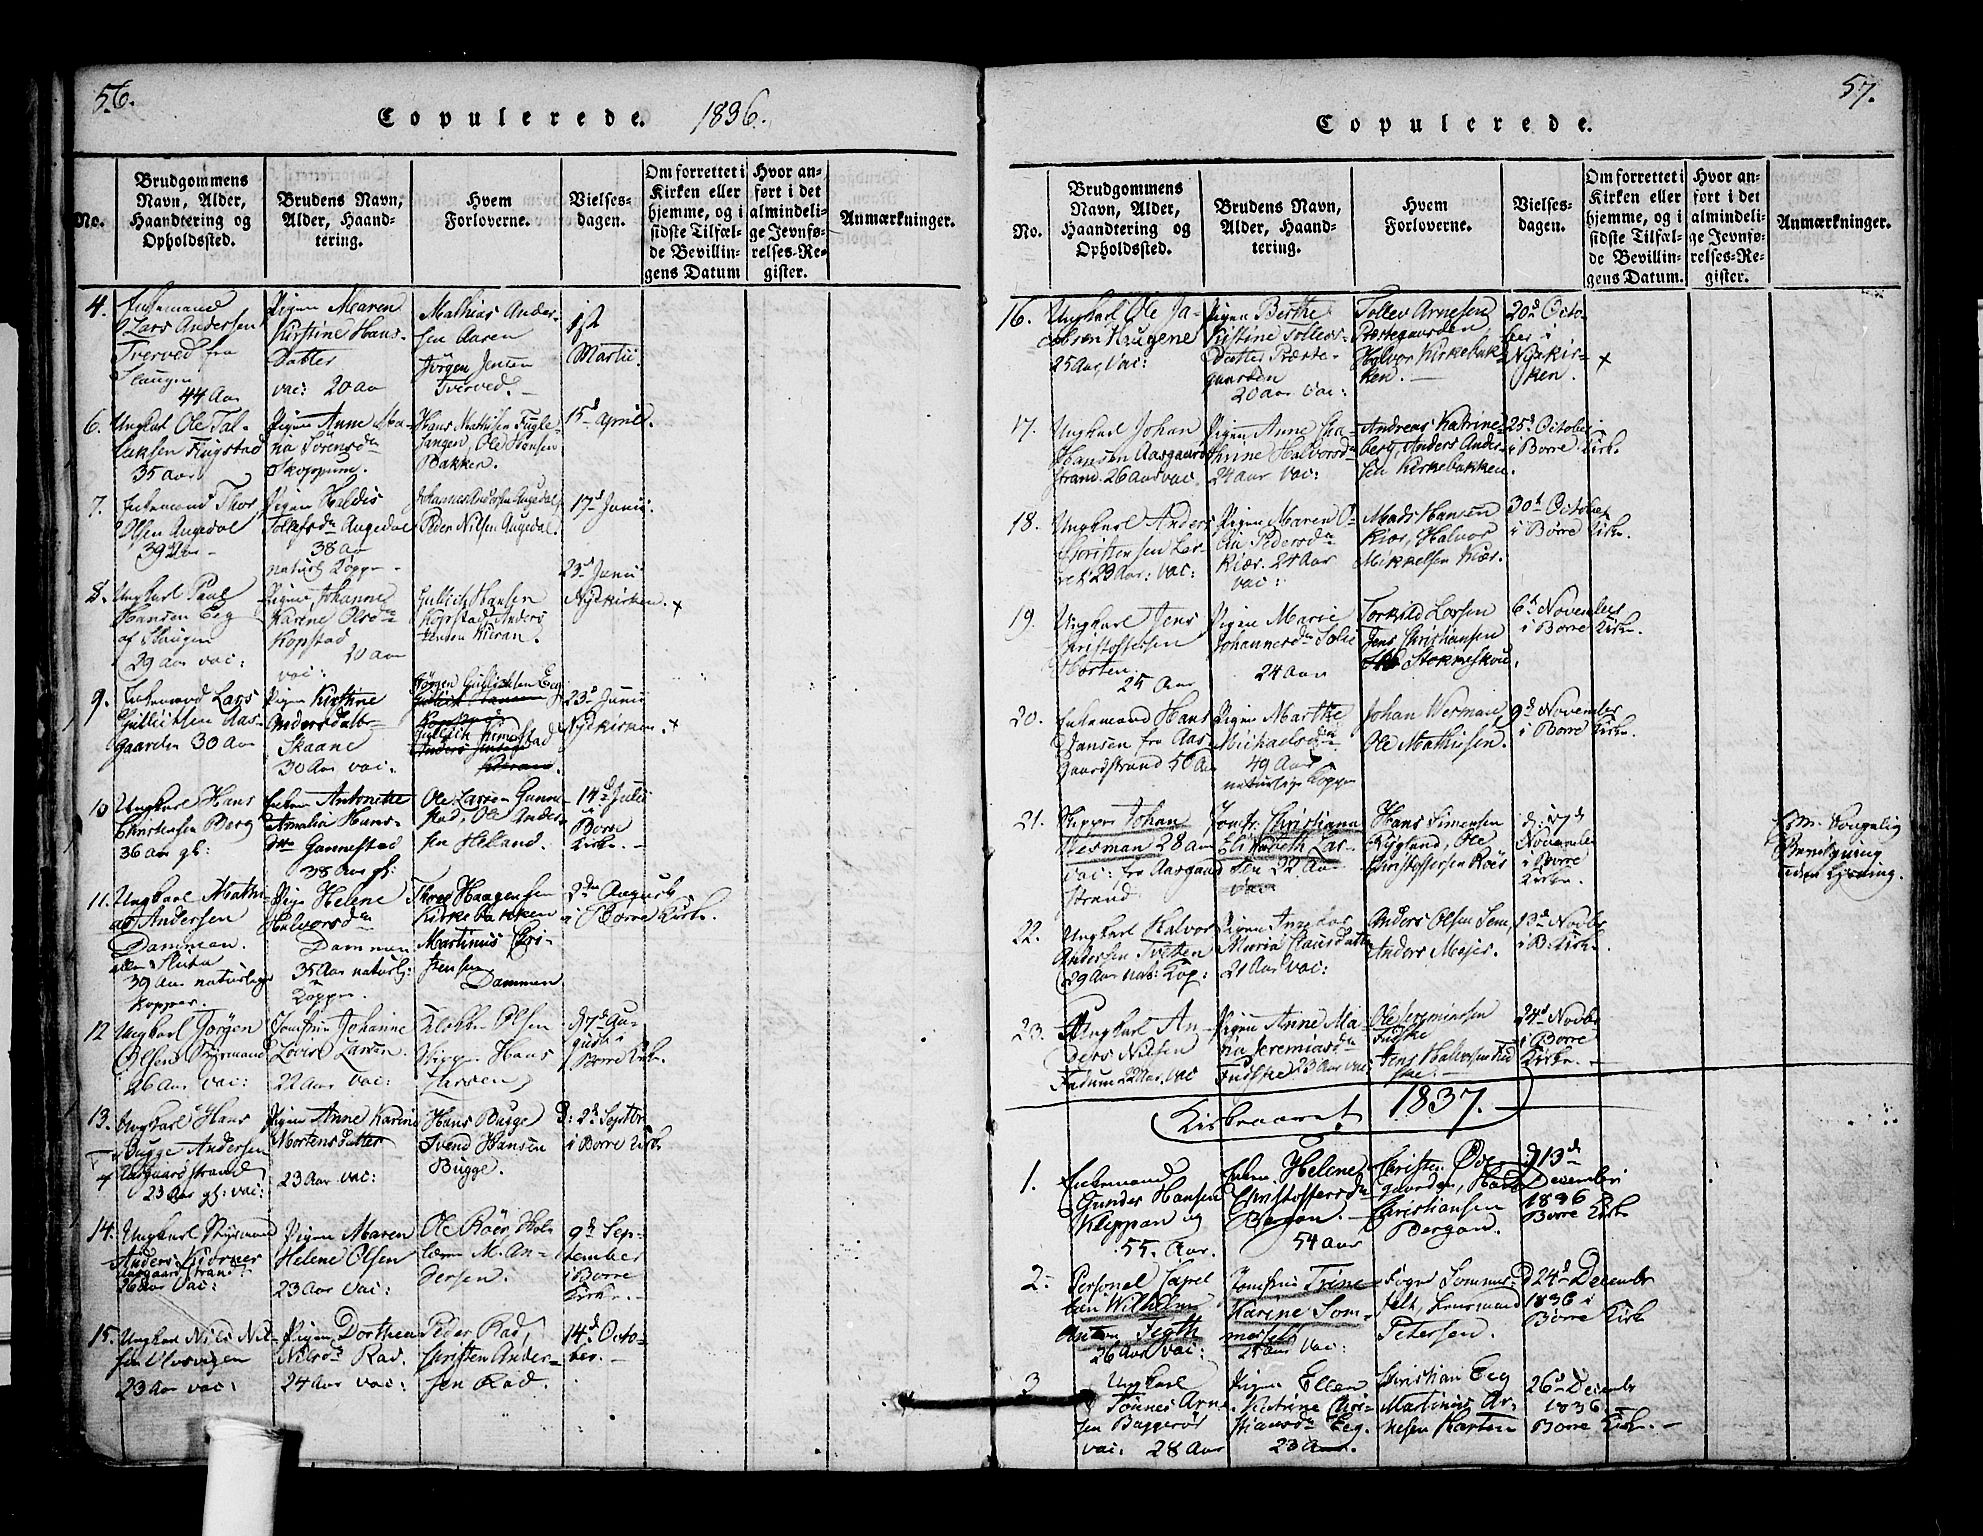 56.
Copulerede. 1836.
No.
Brudgommens Navn, Alder, Haandtering og Opholdssted.
Brudens Navn, Alder, Haandtering.
Hvem Forloverne.
Vielsesdagen.
Om forrettet i Kirken eller hjemme, og i sidste Tilfælde Bevillingens Datum
Hvor anført i det almindelige Jevnførelses-Register.
Anmærkninger.
4.
Enkemand
Lars Andersen
Tverved fra
Slaugen
44 Aar
Pigen Maren
Kirstine Hans-
Datter
vac: 20 aar
Mathias Ander-
sen Aaren
Jörgen Jensen
Tverved.
1st
Martii
6.
Ungkarl Ole Tal-
laksen
35 aar
Pigen Anne Ma-
ria Sörensd
Skoppum.
Hans Mathisen Fugle-
, Ole Hansen
Bakken.
15d april.
7.
Enkemand Thor
Olsen Augedal
39 Aar
Pigen Haldis
Augedal
38 Aar
naturl Kopper
Augedal
Peder Nilsen Augedal.
17d Junii
8.
Ungkarl Paul
Hansen Eeg
af Slaugen
29 aar vac:
Pigen Johanne
Karine Olsd
Kopstad
20 aar
vac:
Gullich Hansen
Kopstad, Anders
Kieran.
23d Junii
Nykirken. +
9.
Enkemand Lars
Gullichsen Aas-
gaarden 30 aar
Pigen Kirstine
Andersdatter
Skaane
30 Aar vac:
Jörgen Gullichsen Eeg
23d Junii
Nykirken. +
10
Ungkarl Hans
Christensen Berg
36 aar gh:
Enken Antonette
Amalia Hans-
Gannestad
38 Aar gh:
Ole Larsen Ganne-
stad, Ole Ander-
sen Helland.
14d Julii
i
Borre
Kirke.
11.
Ungkarl Mathi-
as Andersen
Dammen.
39 Aar naturlige
Kopper.
Pige Helene
Halvorsd
Dammen
35 Aar naturl:
Kopper.
Thor Haagensen
Kirkebakken
Martinus Chri-
stensen
Dammen
2den August
i Borre Kirke.
12
Ungkarl Jörgen
Olsen Styrmand
26 aar vac:
Jomfru Johanne
Lovise Larsen.
22 aar vac:
Olsen
Skipper Hans
Larsen
d 7d Au-
gust i
Borre Kirke.
13.
Ungkarl Hans
Bugge Andersen
Aasgaardstrand
23 Aar gh: vac:
Pigen Anne Karine
Mortensdatter
23 Aar vac:
Hans Bugge
Svend Hansen
Bugge.
D: 2d Septbr
i Borre Kirke
14.
Ungkarl Styrmand
Anders Kiörner
Aasgaardstrand
26 aar vac:
Pigen Maren
Helene Olsen
23 Aar vac:
Ole Röer
M. An-
dersen.
9d Sep-
tember
i Borre
Kirke.
15.
Ungkarl Nils Nil-
sen Ulvsvigen
23 Aar vac:
Pigen Dorthea
Nilsd Rad.
24 Aar vac:
Peder Rad,
Christen Ander-
sen Rad.
14d Octo-
ber.
57.
Copulerede.
No.
Brudgommens Navn, Alder, Haandtering og Opholdssted.
Brudens Navn, Alder, Haandtering.
Hvem Forloverne.
Vielsesdagen.
Om forrettet i Kirken eller hjemme, og i sidste Tilfælde Bevillingens Datum.
Hvor anført i det almindelige Jevnførelses-Register.
Anmærkninger.
16.
Ungkarl Ole Ja-
cobsen Haugene
25 Aar, vac:
Pigen Berthe
Kistine Tollevs-
Datter Præste-
gaarden
20 aar vac:
Tollev Arnesen
Præstegaarden,
Halvor Kirkebak-
ken.
20d Octo-
ber i
Nykir-
ken. +
17.
Ungkarl Johan
Hansen Aasgaard-
strand. 26 Aar vac.
Pigen Anne Cha-
thrine Halvorsd
24 Aar vac:
Andreas Katrine-
berg, Anders Ander-
sen Kirkebakken.
25d October
i Borre Kirk.
18.
Ungkarl Anders
Christensen
23 Aar: vac:
Pigen Maren
Pedersd
Kiær. 24 aar
vac:
Mads Hansen
Kiær, Halvor
Mikkelsen Kiær.
30d October
i Borre Kirke.
19.
Ungkarl Jens
Christoffersen
Horsten.
25 Aar
Pigen Marie
Johannesd
24 Aar
Torkild Larsen
Jens Christiansen
6d November
i Borre Kirke.
20.
Enkemand Hans
Jansen fra Aas-
gaardstrand 50 Aar
Pigen Marthe
Michaelsd
49 Aar
naturlige Kopper
Johan Wesman
Ole Mathisen.
9d November
i Borre Kirke.
21.
Skipper Johan
Wesman 28 aar
vac: fra Aasgaard
strand
Jomfr. Christiana
Elisabeth Lar-
sen 22 Aar
Hans Simensen
Rygland, Ole
Christoffersen Röes
d: 17d
November
i Borre
Kirke.
Efter Kongelig
Bevilgning
uden Lysning.
22.
Ungkarl Halvor
Andersen Tveten
29 Aar nat: Kop:
Pigen
Maria Clausdatter
21 Aar vac:
Anders Olsen Sem,
Anders
13d Novbr
i B. Kirke.
23.
Ungkarl An-
ders Nielsen
Fadum 22 Aar. vac
Pigen Anne Ma-
ria Jeremiasd
Fuske 23 Aar vac:
Ole Jeremiasen
Fuske
Jens Halvorsen Fu-
ske.
24d Novbr
i Borre
Kirke.
Kirkeaaret 1837.
1.
Enkemand
Gunder Hansen
Kleppan
55. Aar.
Enken Helene
Christoffersd
Bergan.
54 aar
Christen
gaarden, Hans
Christiansen
Bergan.
d 13d
December
1836
Borre Kirke
2.
Personel Capel-
lan Wilhelm
Anton Feyth
26 Aar vac:
Jomfru Trine
Karine Som-
merfelt
21 aar vac:
Foged Sommer-
felt, Lensmand
Petersen.
D 24d Decembr
1836 i
Borre Kirke
3
Ungkarl
Tönnes Arne-
sen Baggeröd
vac: 28 Aar
Pigen Ellen
Katrine Chri-
stiansd Eeg.
23 Aar.
Christian Eeg
Martinus Ar-
nesen Horsten
26d Decembr
1836.
Borre Kirke.